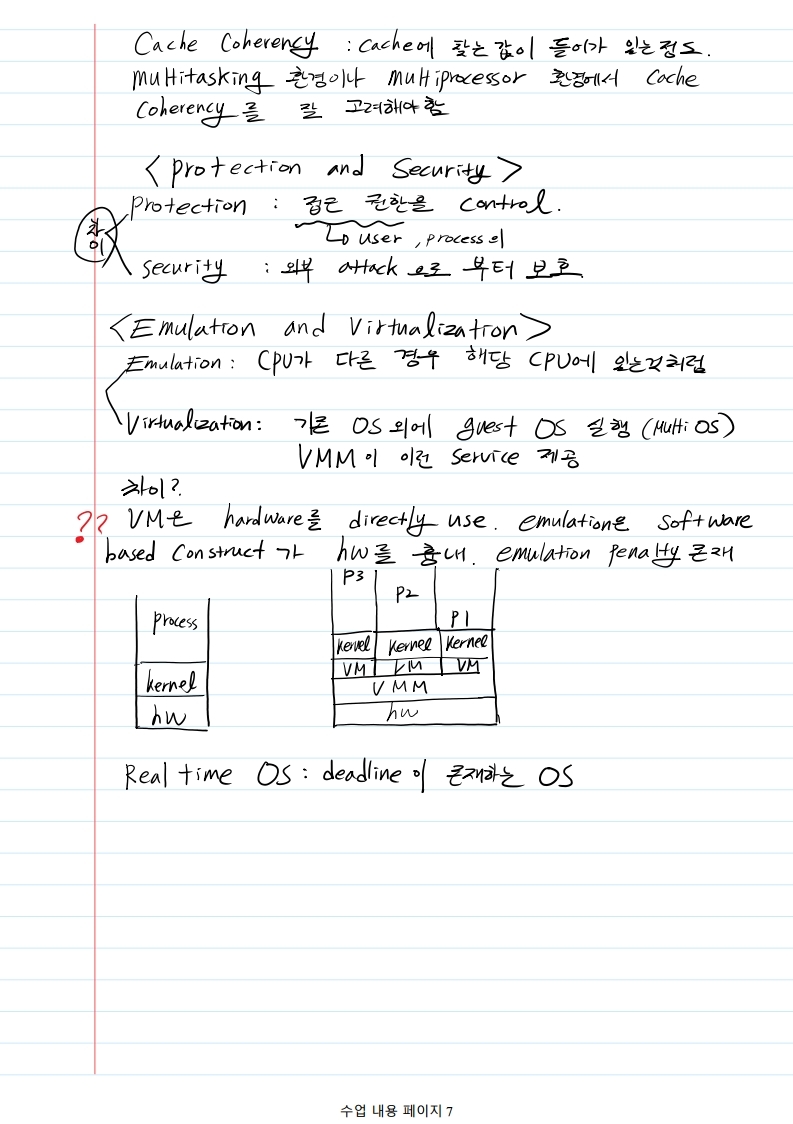 Cache Coherency : cache에 맞는 값이 들어가 있는 정도.
multitasking 환경이나 multiprocessor 환경에서 Cache
Coherency를 잘 고려해야 함
< protection and Security >
protection : 접근 권한을 control.
차이
↳ user, process의
security : 외부 attack 으로 부터 보호
<Emulation and Virtualization>
Emulation : CPU가 다른 경우 해당 CPU에 있는것처럼
Virtualization : 기존 OS 외에 guest OS 실행 (Multi OS)
VMM이 이런 service 제공
차이?
?? VM은 hardware를 directly use. emulation은 software
based construct 가 hw를 흉내. emulation penalty 존재
process
kernel
hw
P3 P2 P1
kernel kernel kernel
VM VM VM
VMM
hw
Real time OS : deadline이 존재하는 OS
수업 내용 페이지 7